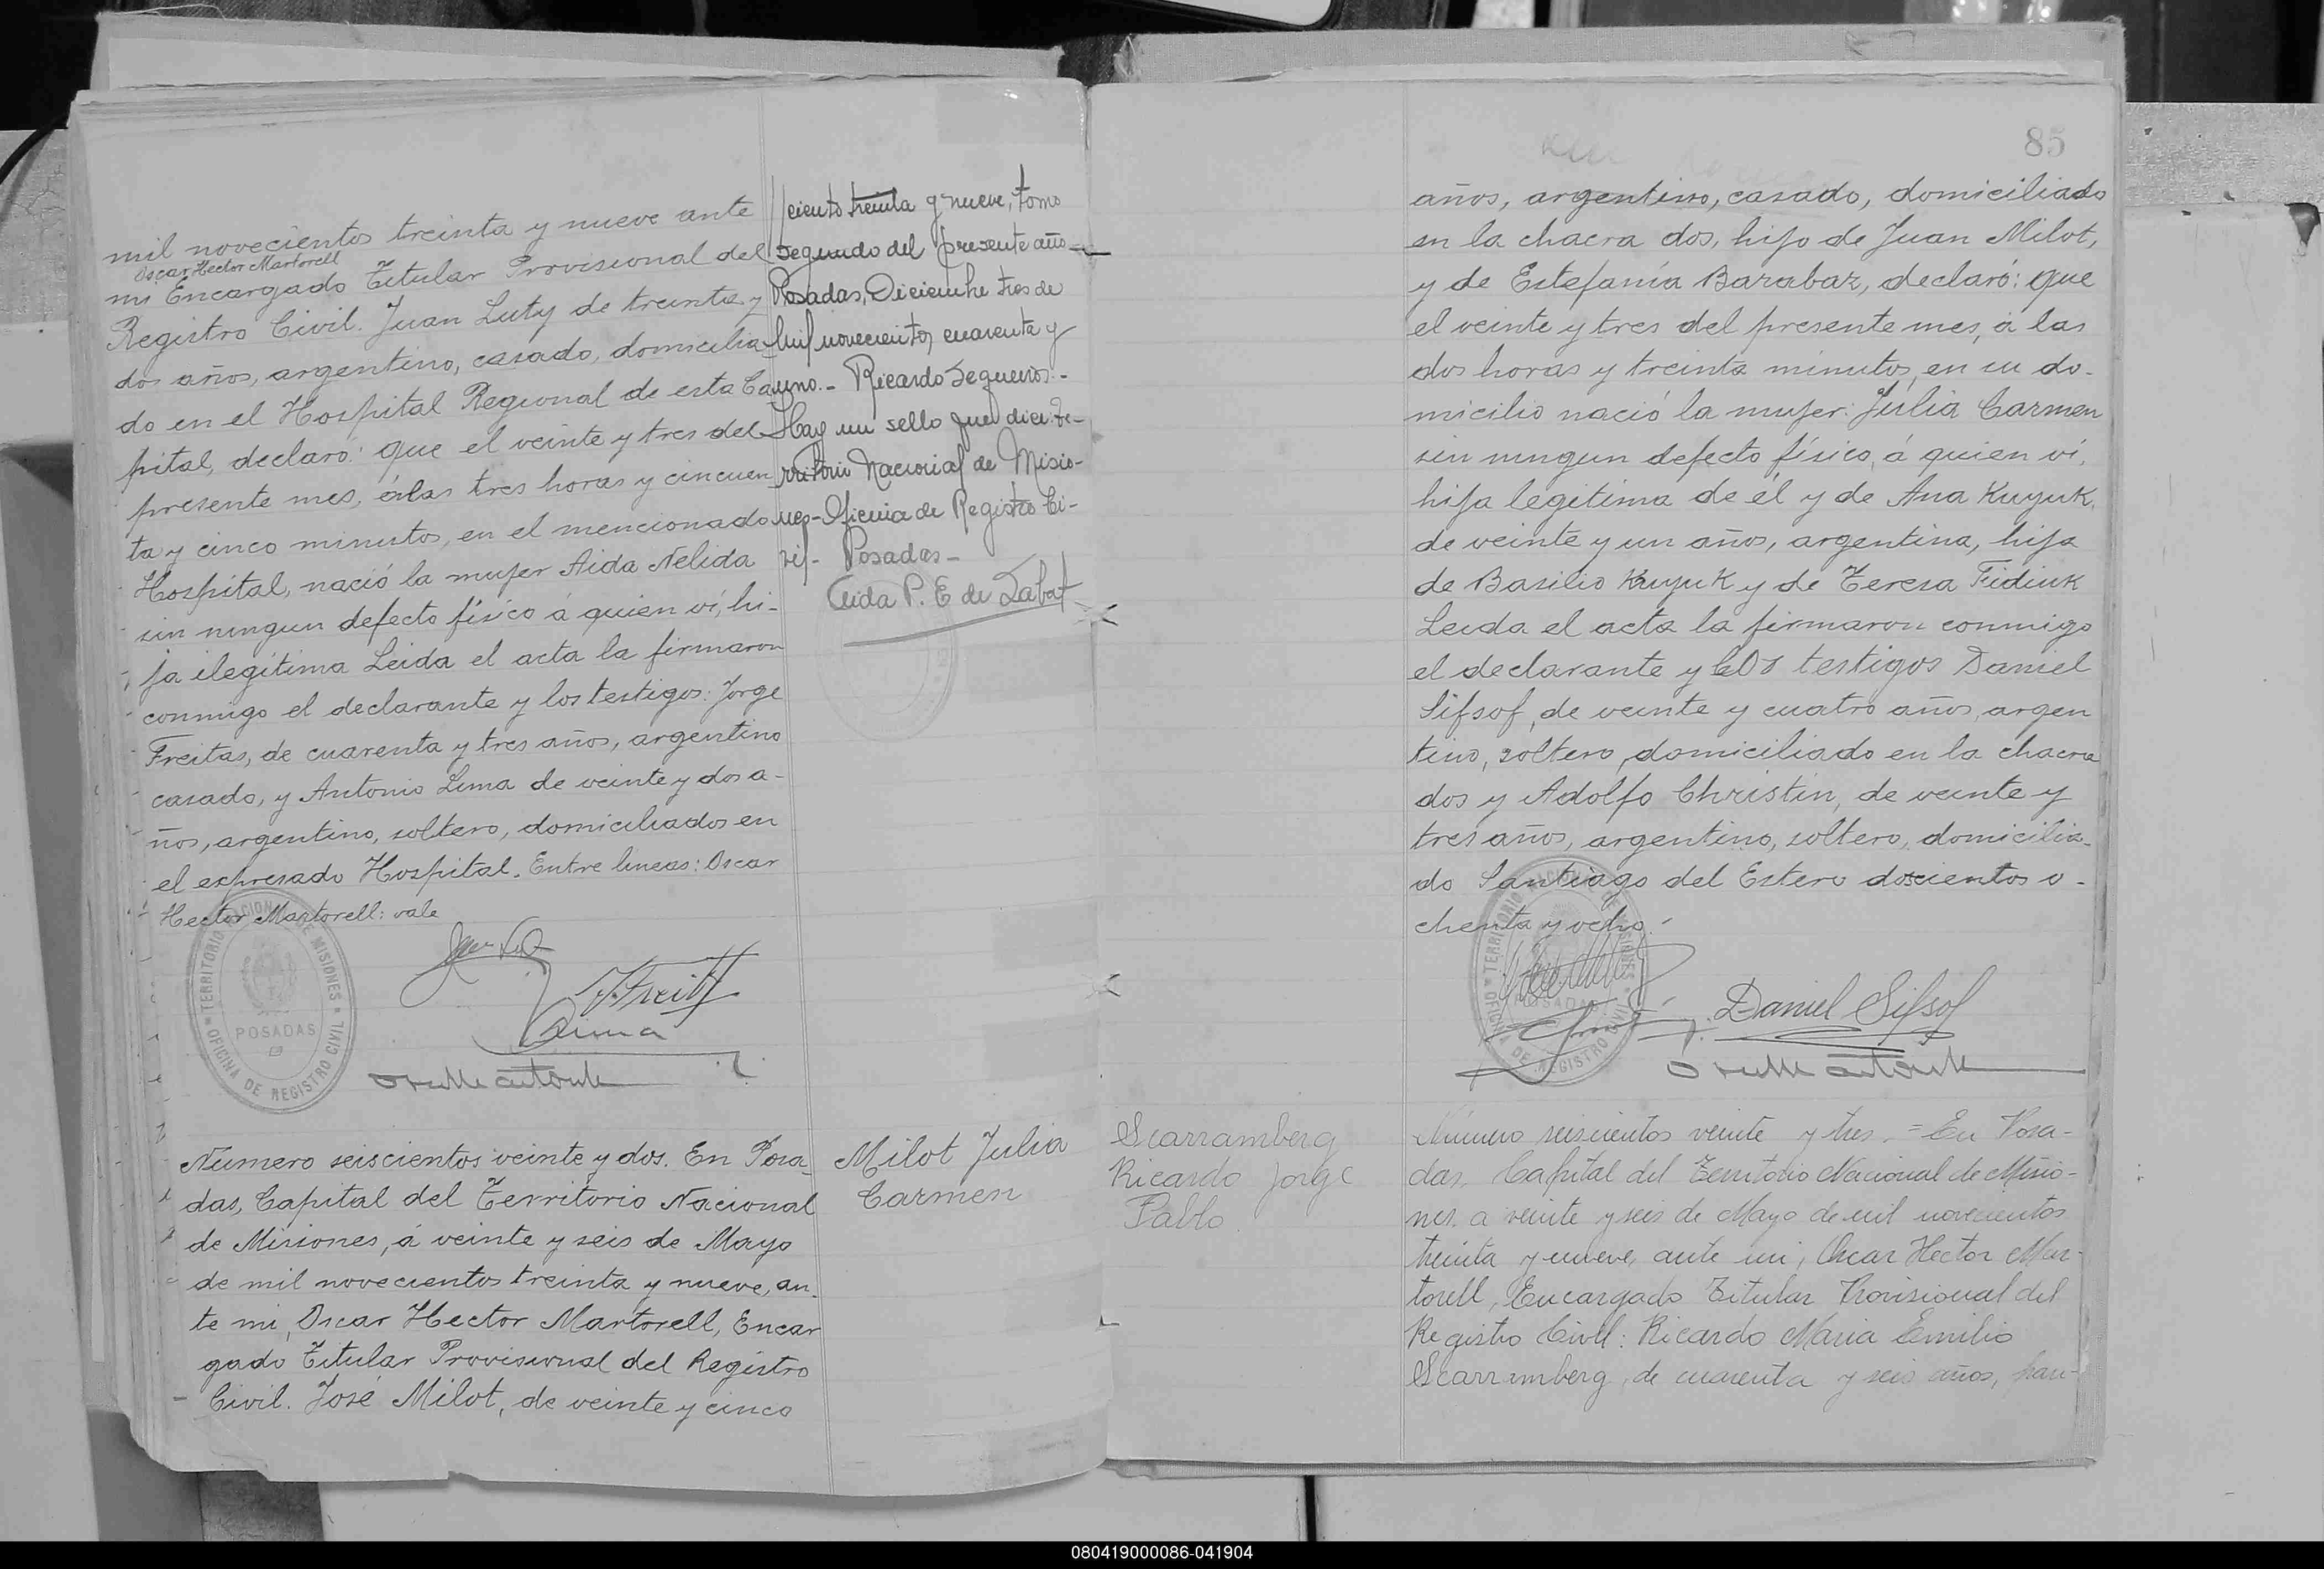 mil novecientos treinta y nueve ante
Oscar Hector Martorell
mi Encargado Titular Provisional del
Registro Civil. Juan Luty de treinta y
dos años, argentino, casado, domicilia-
do en el Hospital Regional de esta Ca
pital, declaró: que el veinte y tres del
presente mes, á las tres horas y cincuen
ta y cinco minutos, en el mencionado
Hospital, nació la mujer Aida Nelida
sin ningun defecto físico á quien ví, hi-
ja ilegítima Leida el acta la firmaron
conmigo el declarante y los testigos: Jorge
Freitas, de cuarenta y tres años, argentino
casado, y Antonio Lima de veinte y dos a-
ños, argentino, soltero, domiciliados en
el expresado Hospital. Entre lineas: Oscar
Hector Martorell: vale
J. Freitas
Lima
TERRITORIO NACIONAL DE MISIONES
POSADAS
OFICINA DE REGISTRO CIVIL
ciento treinta y nueve, tomo
segundo del presente año-
Posadas, Diciembre tres de
mil novecientos cuarenta y
uno.- Ricardo Sequeiros.-
Hay un sello que dice: Te-
rritorio Nacional de Misio-
nes- Oficina de Registro Ci-
vil- Posadas-
Aida P. E de Labat
Número seiscientos veinte y dos. En Posa
das, Capital del Territorio Nacional
de Misiones, á veinte y seis de Mayo
de mil novecientos treinta y nueve, an-
te mi, Oscar Hector Martorell, Encar
gado Titular Provisional del Registro
Civil. José Milot, de veinte y cinco
Milot Julia
Carmen
85
años, argentino, casado, domiciliado
en la chacra dos, hijo de Juan Milot,
y de Estefanía Barabaz, declaró: que
el veinte y tres del presente mes, á las
dos horas y treinta minutos, en su do-
micilio nació la mujer: Julia Carmen
sin ningun defecto físico, á quien ví,
hija legítima de él y de Ana Kuyuk,
de veinte y un años, argentina, hija
de Basilio Kuyuk y de Teresa Fidiuk
Leida el acta la firmaron conmigo
el declarante y los testigos Daniel
Sifsof, de veinte y cuatro años, argen
tino, soltero, domiciliado en la chacra
dos y Adolfo Christin, de veinte y
tres años, argentino, soltero, domicilia-
do Santiago del Estero doscientos o-
chenta y ocho.
TERRITORIO NACIONAL DE MISIONES
POSADAS
OFICINA DE REGISTRO CIVIL
Daniel Sifsof
Scarramberg
Ricardo Jorge
Pablo
Número seiscientos veinte y tres.= En Posa-
das, Capital del Territorio Nacional de Misio-
nes, a veinte y seis de Mayo de mil novecientos
treinta y nueve, ante mi, Oscar Hector Mar-
torell, Encargado Titular Provisional del
Registro Civil: Ricardo Maria Emilio
Scarramberg, de cuarenta y seis años, fran-
080419000086-041904